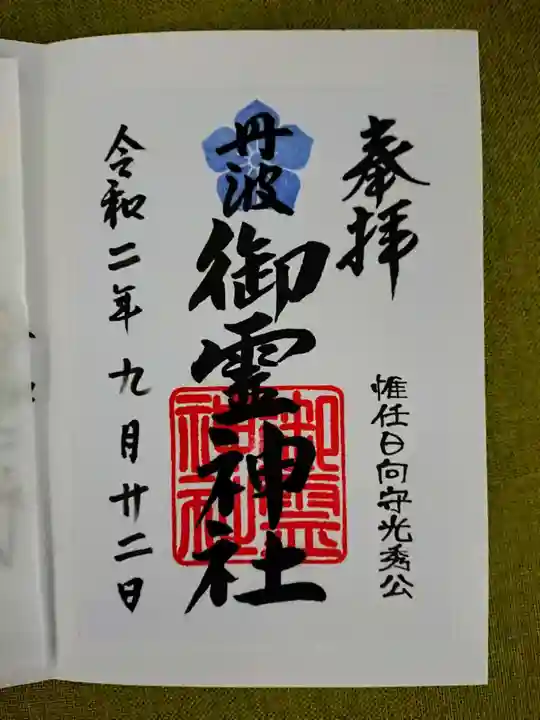 奉拝
惟任日向守光秀公
丹波
御霊神社
御霊
神社
令和二年九月廿二日